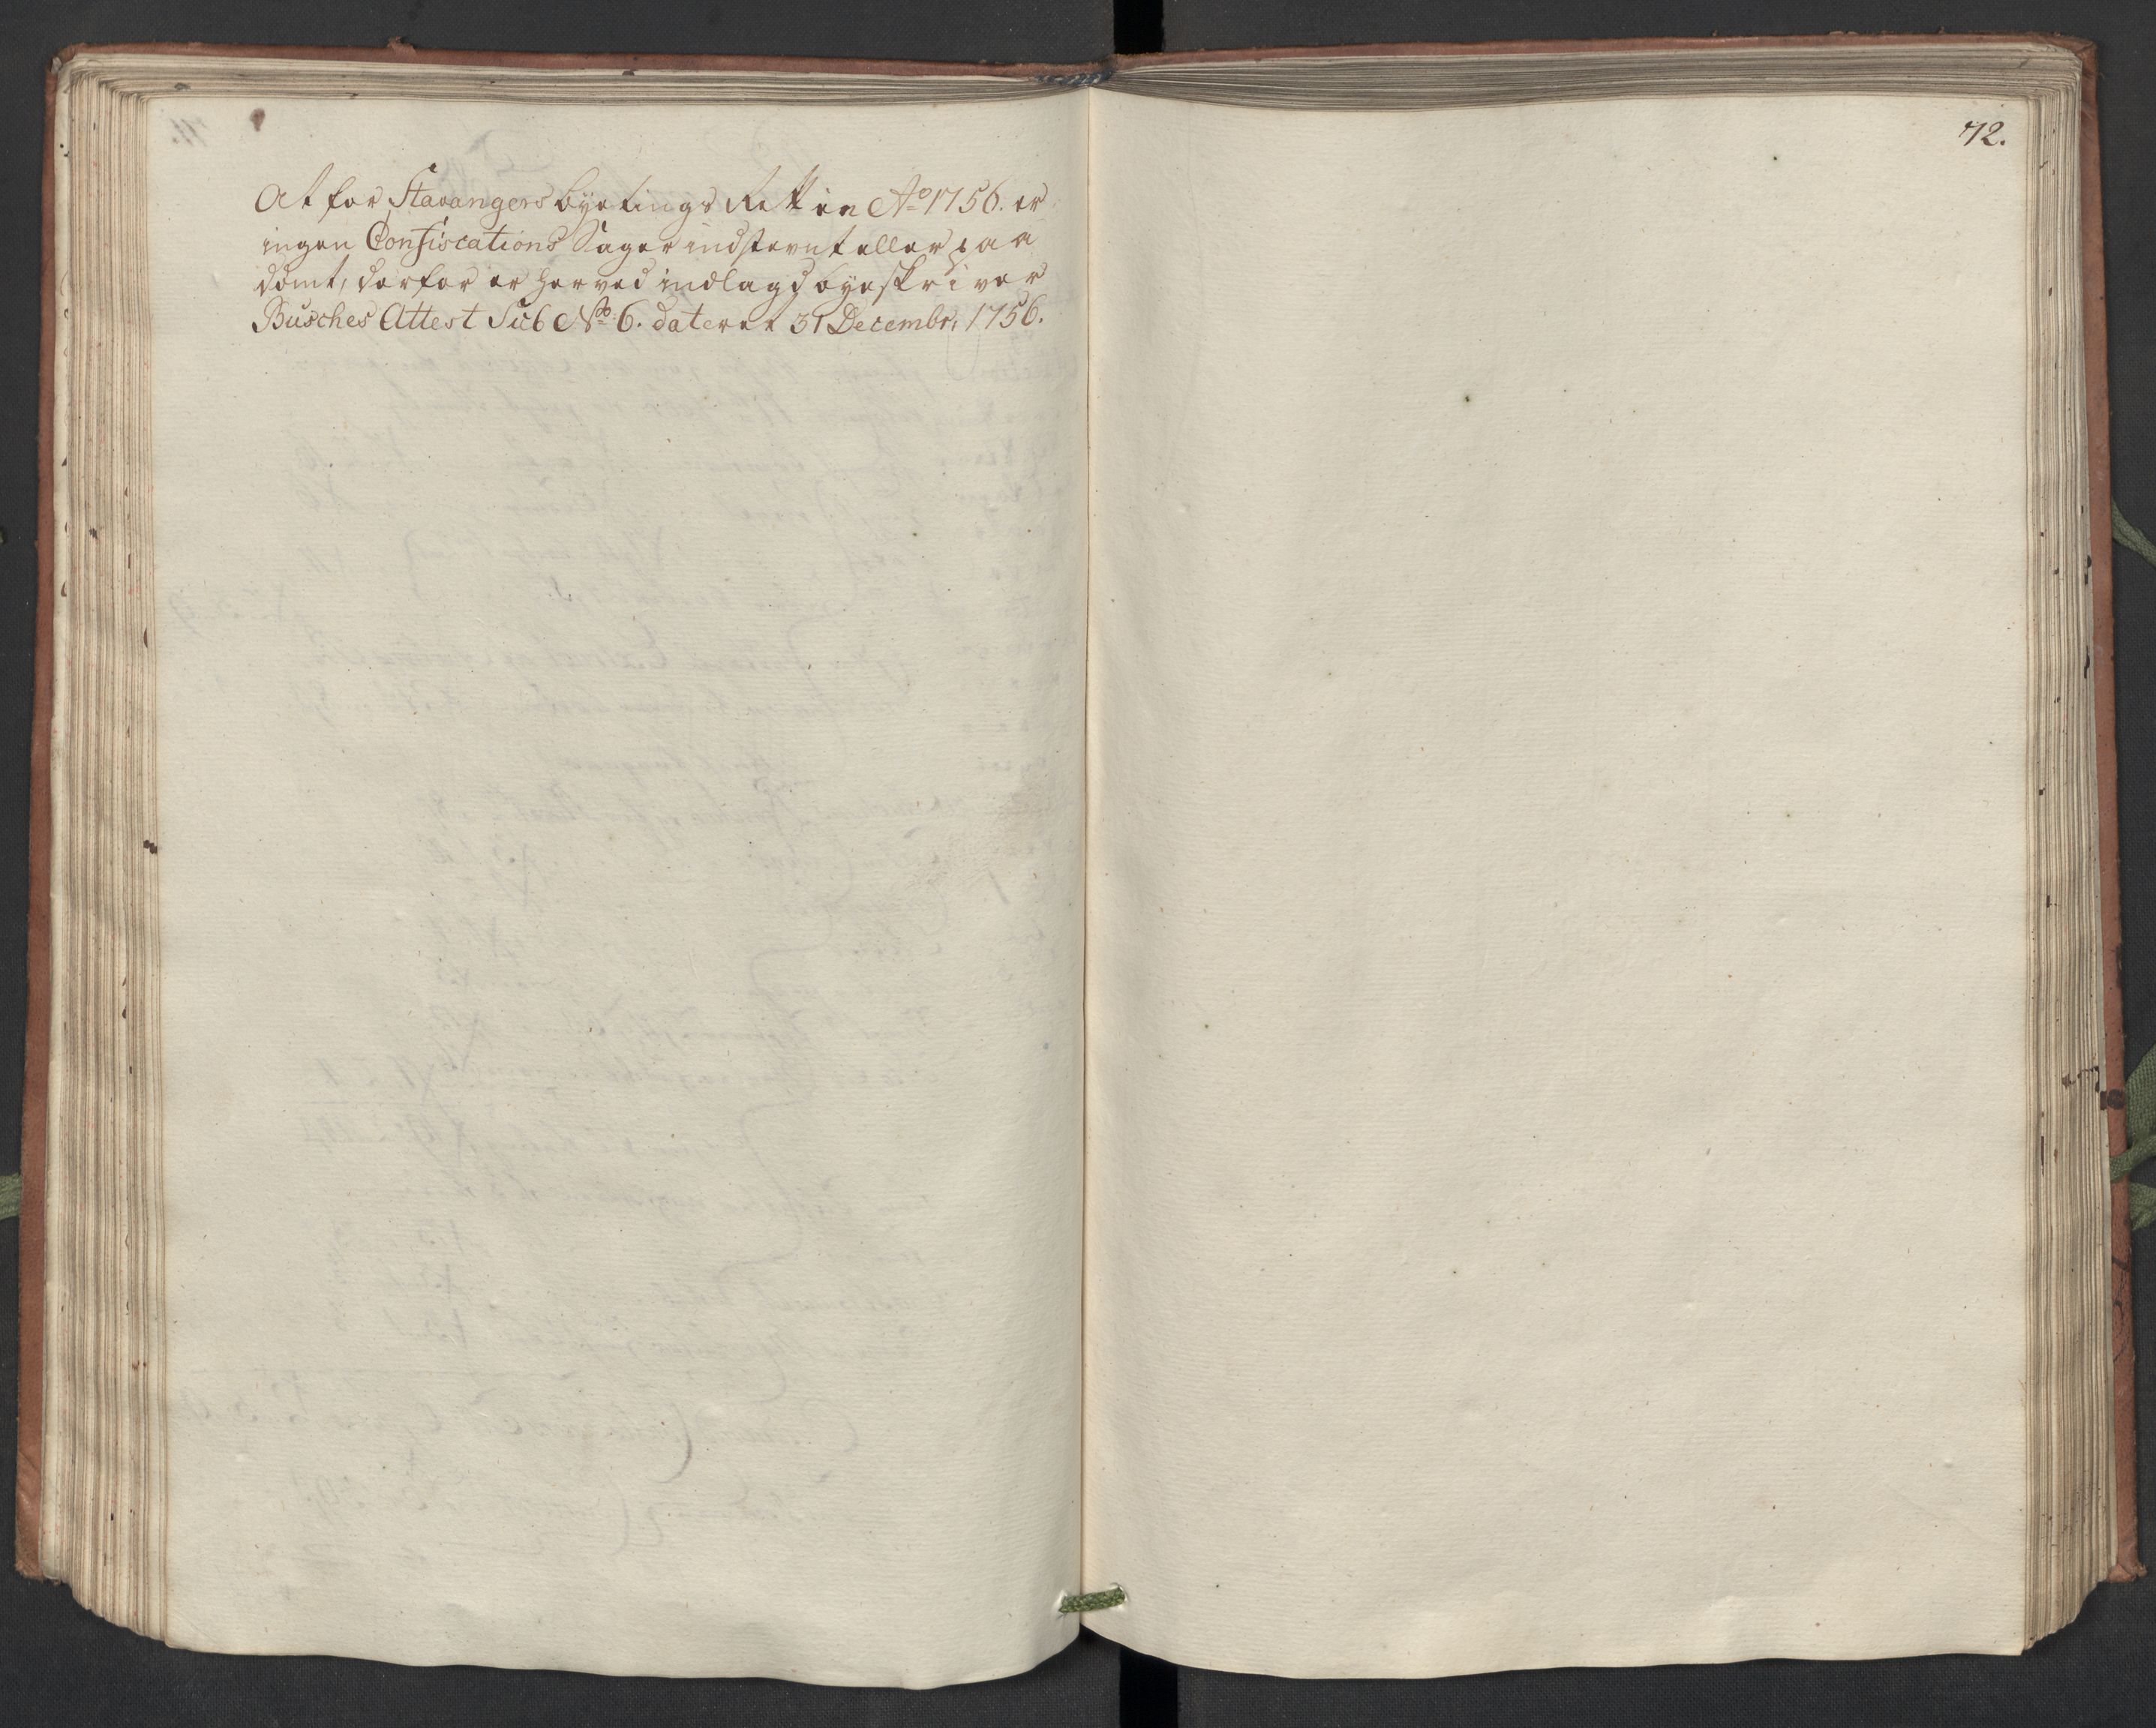 72.
At for Stavangers byetings Rett in Ao 1756. er
ingen Confiscations Sager indstevnt eller paa
dömt, derfor er herved indlagd byeskriver
Busches Attest Sub No 6. dateret 31 Decembr: 1756.